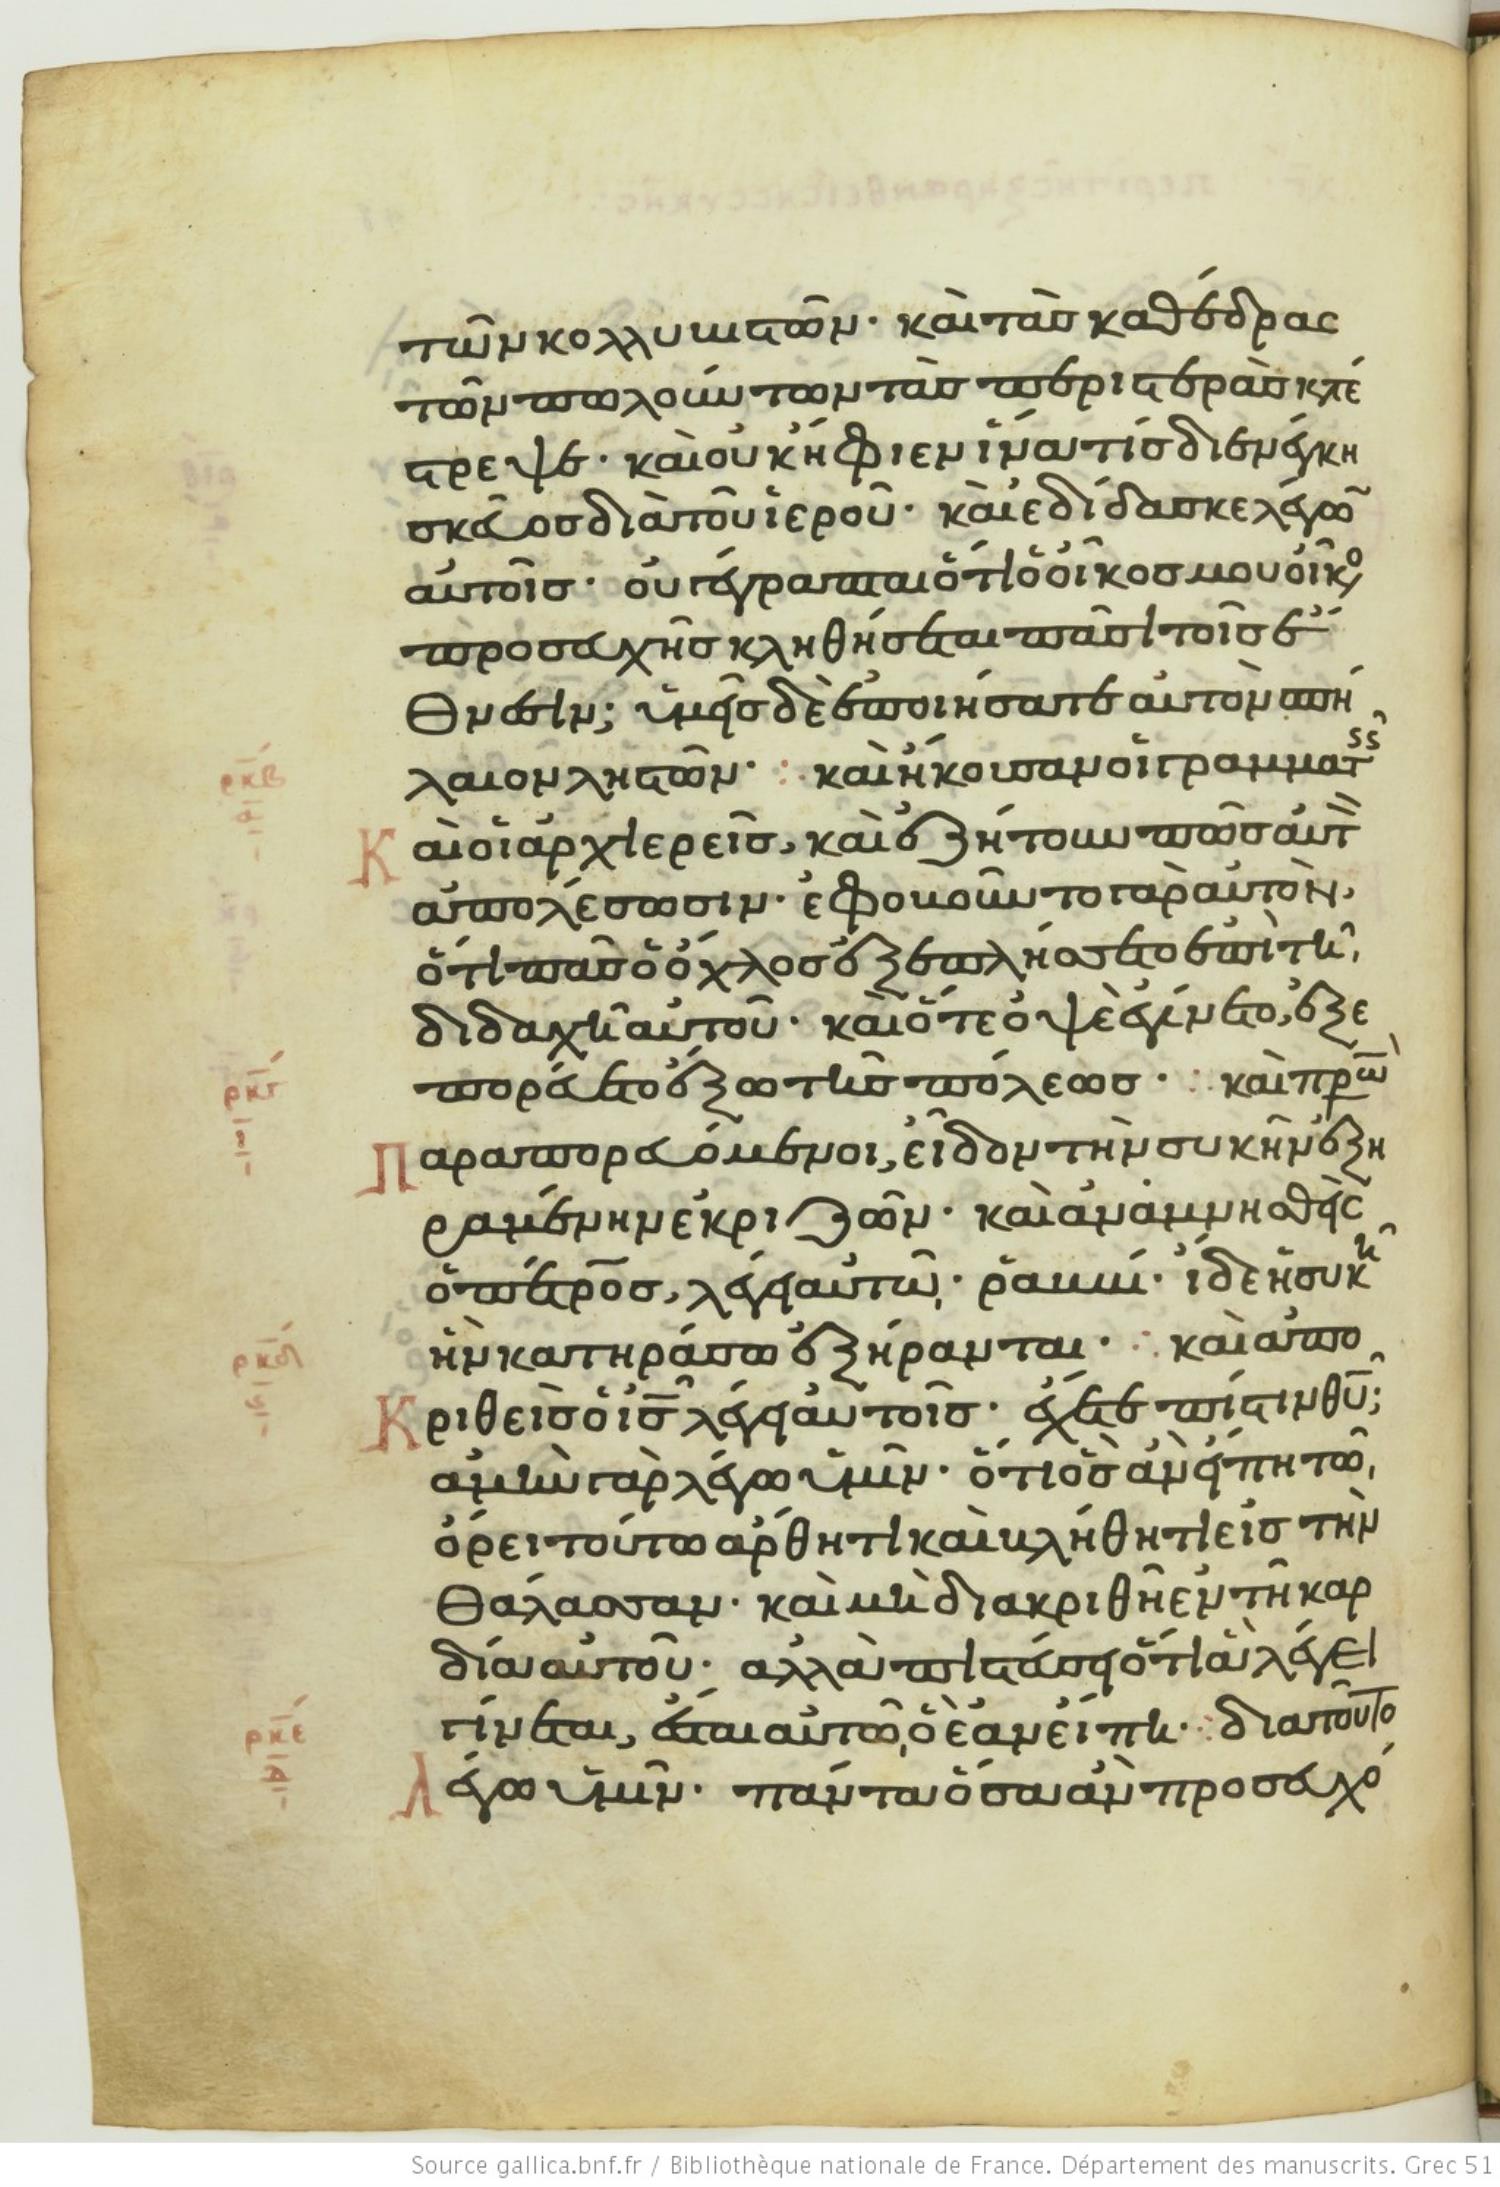 τῶν κολλυβιστῶν· καὶ τὰς καθέδρας
τῶν πωλούντων τὰς περιστερὰς κατέ
στρεψε· καὶ οὐκ ἤφιεν ἵνα τίς διενέγκη
σκεῦος διὰ τοῦ ἱεροῦ· καὶ ἐδίδασκε λέγων
αὐτοῖς· οὐ γέγραπται ὅτι ὁ οἶκος μου οἶκος
προσευχῆς κληθήσεται πᾶσι τοῖς ἔ
θνεσιν; ὑμεῖς δὲ ἐποιήσατε αὐτὸν σπή
λαιον ληστῶν· καὶ ἤκουσαν οἱ γραμματεῖς
Καὶ οἱ ἀρχιερεῖς, καὶ ἐζήτουν πῶς αὐτὸν
ἀπολέσωσιν· ἐφοβοῦντο γὰρ αὐτὸν,
ὅτι πᾶς ὁ ὄχλος ἐξεπλήσσετο ἐπὶ τῆ
διδαχῆ αὐτοῦ· καὶ ὅτε ὀψὲ ἐγίνετο, ἐξε
πορεύετο ἔξω τῆς πόλεως· καὶ πρωῒ
Παραπορευόμενοι, εἶδον τὴν συκῆν ἐξη
ραμένην ἐκ ριζῶν· καὶ ἀναμνησθεὶς
ὁ πέτρος, λέγει αὐτῶ· ῥαββί· ἴδε ἡ συκῆ
ἣν κατηράσω ἐξήρανται· καὶ ἀπο
Κριθεὶς ὁ ις λέγει αὐτοῖς· ἔχετε πίστιν θυ;
ἀμὴν γὰρ λέγω ὑμῖν· ὅτι ὃς ἂν εἴπη τῶ
ὄρει τούτω ἄρθητι καὶ βλήθητι εἰς τὴν
Θάλασσαν· καὶ μὴ διακριθῆ ἐν τῆ καρ
δία αὐτοῦ· ἀλλὰ πιστεύση ὅτι ἃ λέγει
γίνεται, ἔσται αὐτῶ, ὃ ἐὰν εἴπη· διατοῦτο
Λέγω ὑμῖν· πάντα ὅσα ἂν προσευχό
ρκβ
α
ρκγ
ρκδ
ϛ
ρκε
δ
Source gallica.bnf.fr / Bibliothèque nationale de France. Département des manuscrits. Grec 51